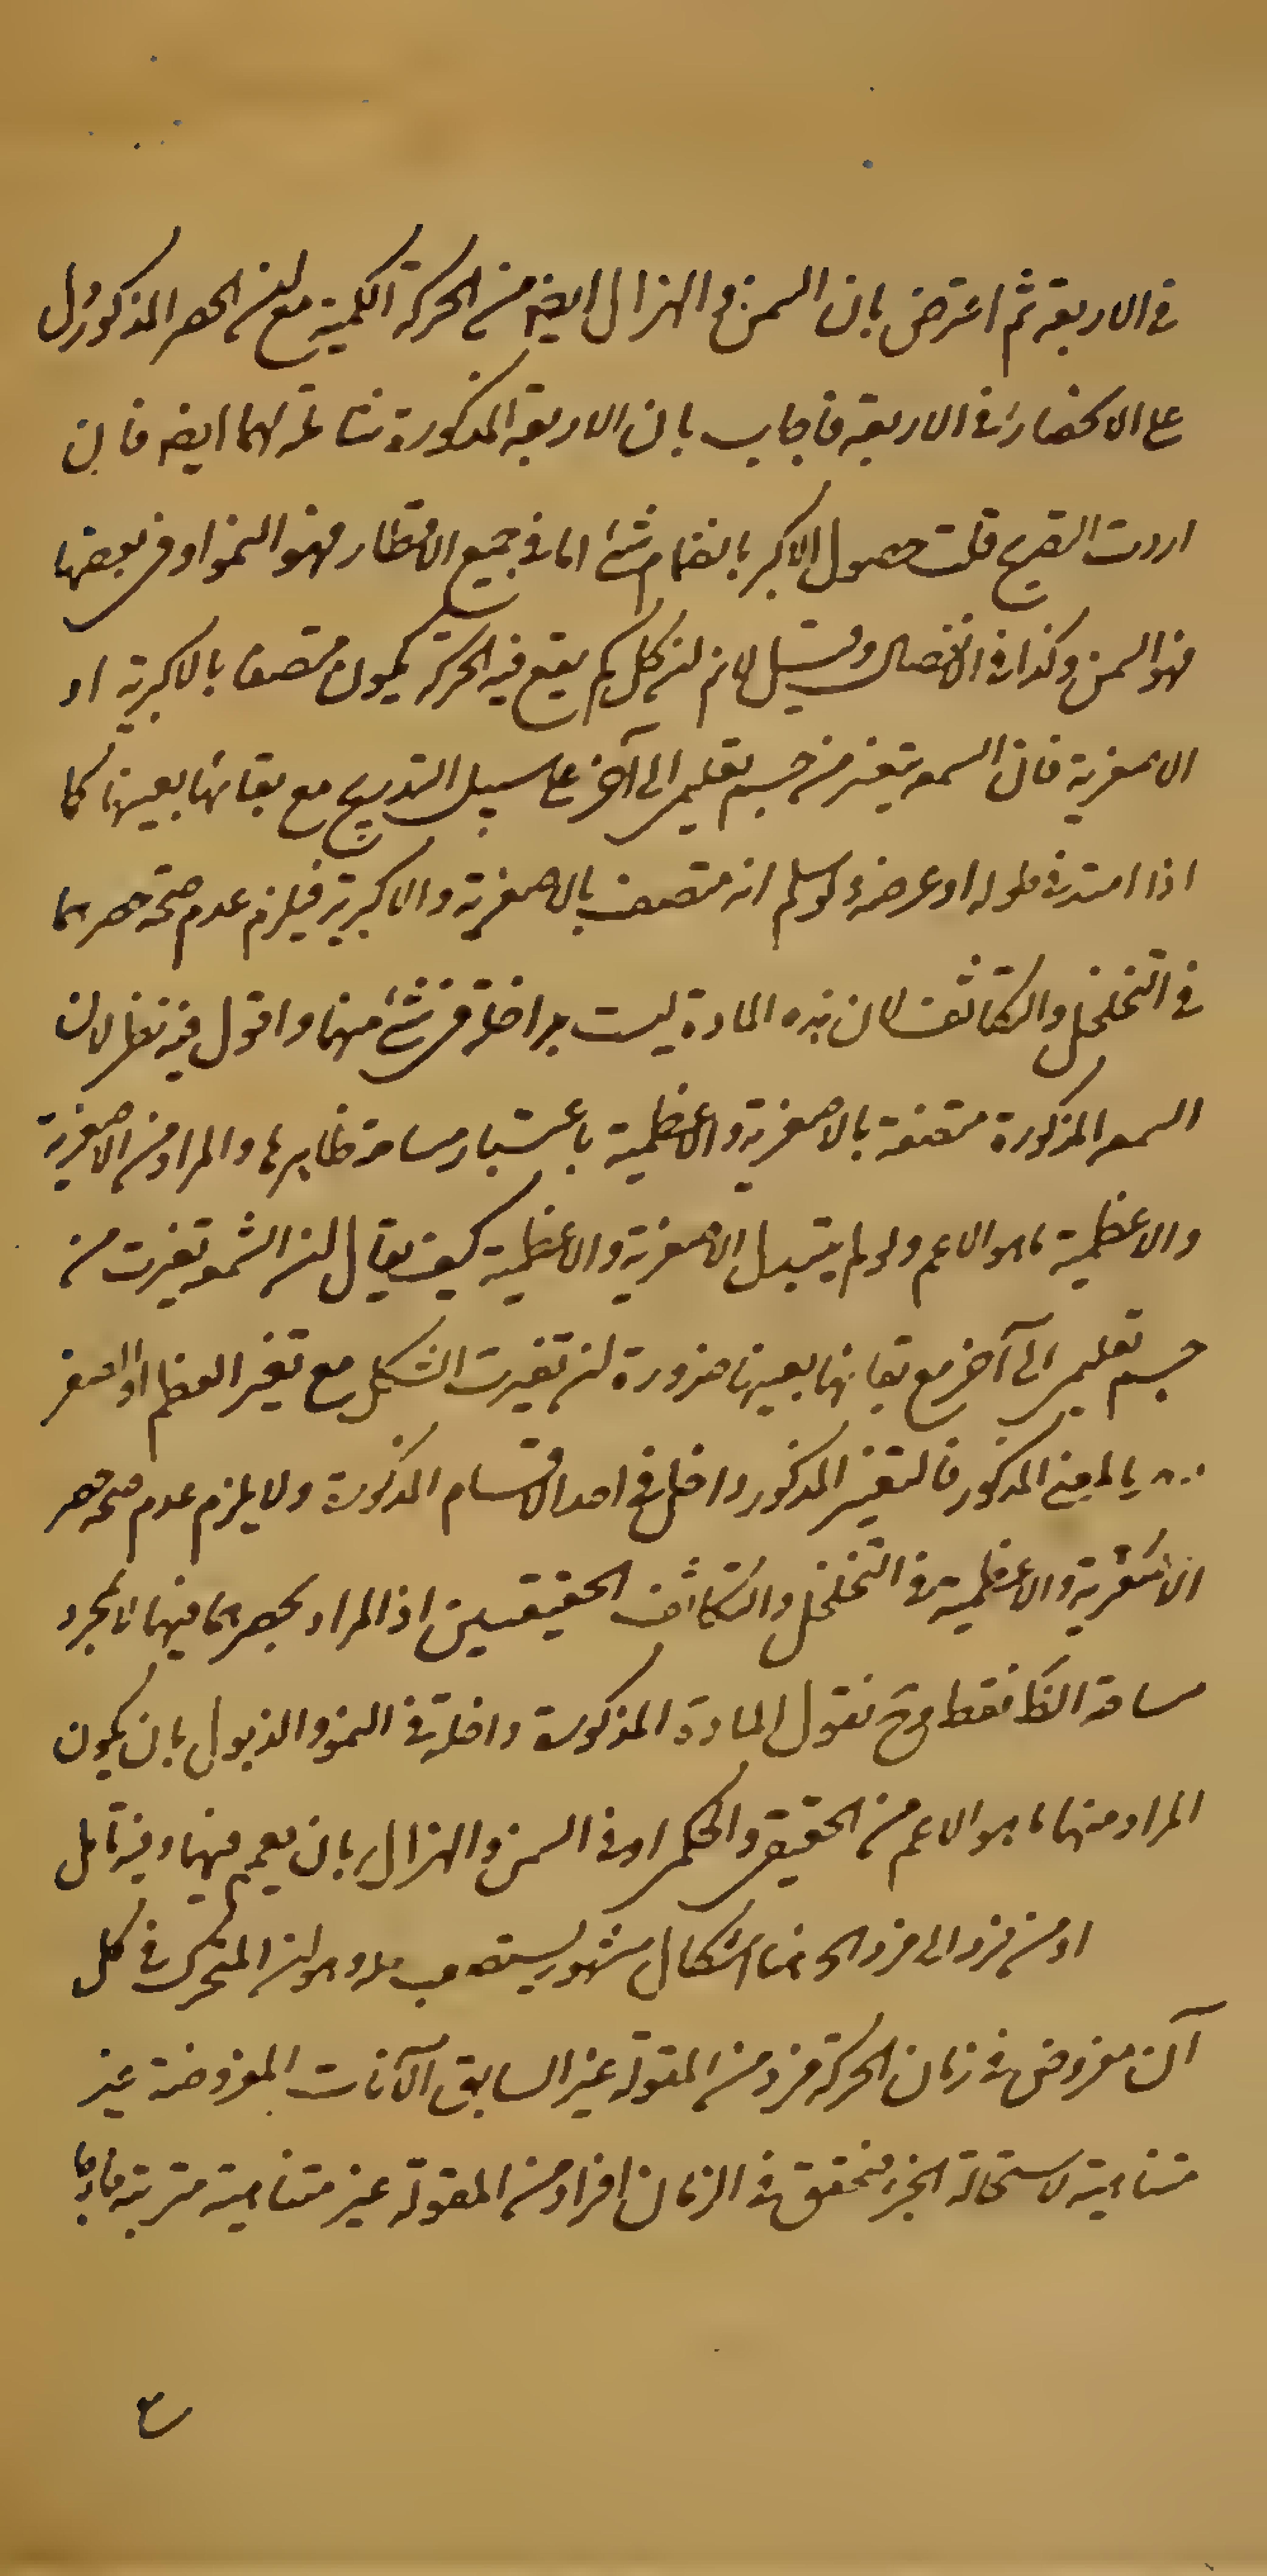 في الاربعة ثم اعترض بان السمن والهزال ايضا من الحركة الكمية مع ان الحصر المذكور دل
على الانحصار في الاربعة فاجاب بان الاربعة المذكورة شاملة لهما ايضا فان
اردت التصريح قلت حصول الاكبر بانضمام شئ اما في جميع الاقطار فهو النمو او في بعضها
فهو السمن وكذا في الانفصال وقيل لانم ان كل كم يقع فيه الحركة يكون متصفا بالاكبرية او
الاصغرية فان الشمعة يتغير من جسم تعليمي الى آخر على سبيل التدريج مع بقائها بعينها كما
اذا امتد في طوله او عرضه ولو سلم انه متصف بالاصغرية والاكبرية فيلزم عدم صحة حصرهما
في التخلخل والتكاثف لان هذه المادة ليست بداخلة في شئ منهما واقول فيه نظر لان
الشمعة المذكورة متصفة بالاصغرية والاعظمية باعتبار مساحة ظاهرها والمراد من الاصغرية
والاعظمية ما هو الاعم ولو لم يتبدل الاصغرية والاعظمية كيف يقال ان الشمعة تغيرت من
جسم تعليمي الى آخر مع بقائها بعينها ضرورة ان تغيرت الشكل مع تغير العظم او الصغر
بالمعنى المذكور فالتغير المذكور داخل في احد الاقسام المذكورة ولا يلزم عدم صحة حصر
الاصغرية والاعظمية في التخلخل والتكاثف الحقيقيين اذ المراد بحصرهما فيهما لا بمجرد
مساحة الظا فقط وح نقول المادة المذكورة داخلة في النمو والذبول بان يكون
المراد منهما ما هو الاعم من الحقيقي والحكمي او في السمن والهزال بان يعمم فيهما وفيه تأمل
او من فرد الى فرد الخ هنا اشكال مشهور يستصعب حله وهو ان المتحرك في كل
آن مفروض في زمان الحركة فرد من المقولة غير السابق والآنات المفروضة غير
متناهية لاستحالة الجزء فتحقق في الزمان افراد من المقولة غير متناهية مترتبة